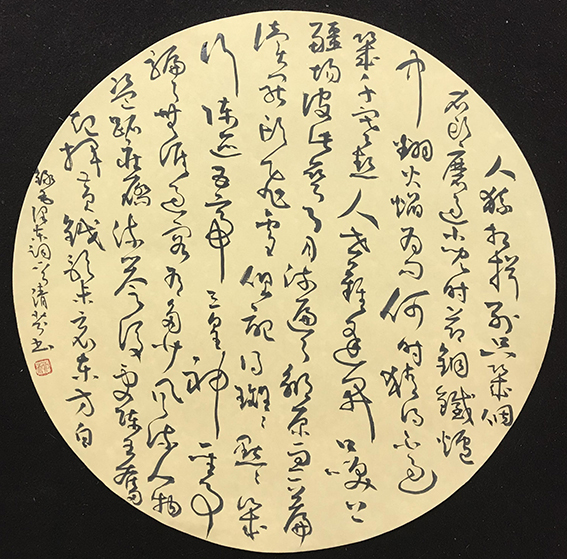 人猿相揖别只几個
石头磨过小儿时节銅鐵爐
中翻火焰为问何时猜得不过
几千寒热人世难逢开口笑上
疆场彼此弯弓月流遍了郊原血一篇
读罢头飞雪但记得斑斑点点几
行陈迹五帝三皇神圣事
骗了无涯过客有多少风流人物
盗跖庄蹻流誉后更陈王奋
起挥黄钺歌未竟东方白
泽东词一首清芬书